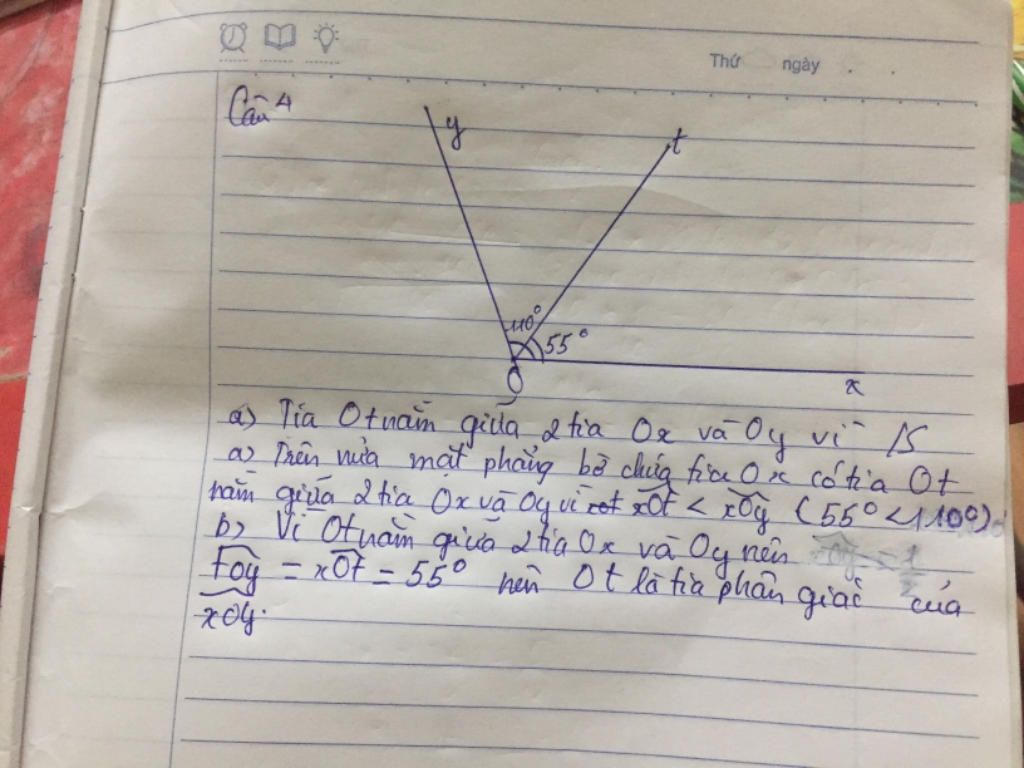 Thứ ngày
Câu 4
y
t
110°
55°
O
x
a) Tia Ot nằm giữa 2 tia Ox và Oy vì
a) Trên nửa mặt phẳng bờ chứa tia Ox có tia Ot
nằm giữa 2 tia Ox và Oy vì xOt < xOy (55° < 110°)
b) Vì Ot nằm giữa 2 tia Ox và Oy nên
tOy = xOt = 55° nên Ot là tia phân giác của
xOy.